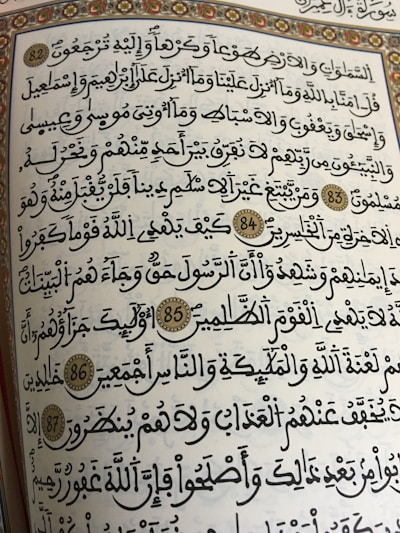 سورة ءال عمران
السماوات والارض طوعا وكرها وإليه ترجعون 82
قل ءامنا بالله وما أنزل علينا وما أنزل على إبراهيم وإسماعيل
وإسحاق ويعقوب والاسباط وما أوتي موسى وعيسى
والنبيئون من ربهم لا نفرق بين أحد منهم ونحن له
مسلمون 83 ومن يبتغ غير الاسلم دينا فلن يقبل منه وهو
في الاخرة من الخاسرين 84 كيف يهدي الله قوما كفروا
بعد إيمانهم وشهدوا أن الرسول حق وجاءهم البينات
والله لا يهدي القوم الظالمين 85 أولئك جزاؤهم أن
عليهم لعنة الله والملئكة والناس أجمعين 86 خالدين
لا يخفف عنهم العذاب ولا هم ينظرون 87 إلا
تابوا من بعد ذالك وأصلحوا فإن الله غفور رحيم